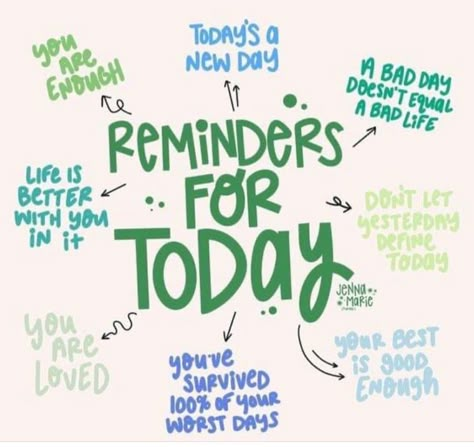 YOU
ARE
ENOUGH
TODAY'S A
NEW DAY
A BAD DAY
DOESN'T EQUAL
A BAD LIFE
REMINDERS
FOR
TODAY
LIFE IS
BETTER
WITH YOU
IN IT
DON'T LET
YESTERDAY
DEFINE
TODAY
JENNA
MARIE
YOU
ARE
LOVED
YOU'VE
SURVIVED
100% OF YOUR
WORST DAYS
YOUR BEST
IS GOOD
ENOUGH